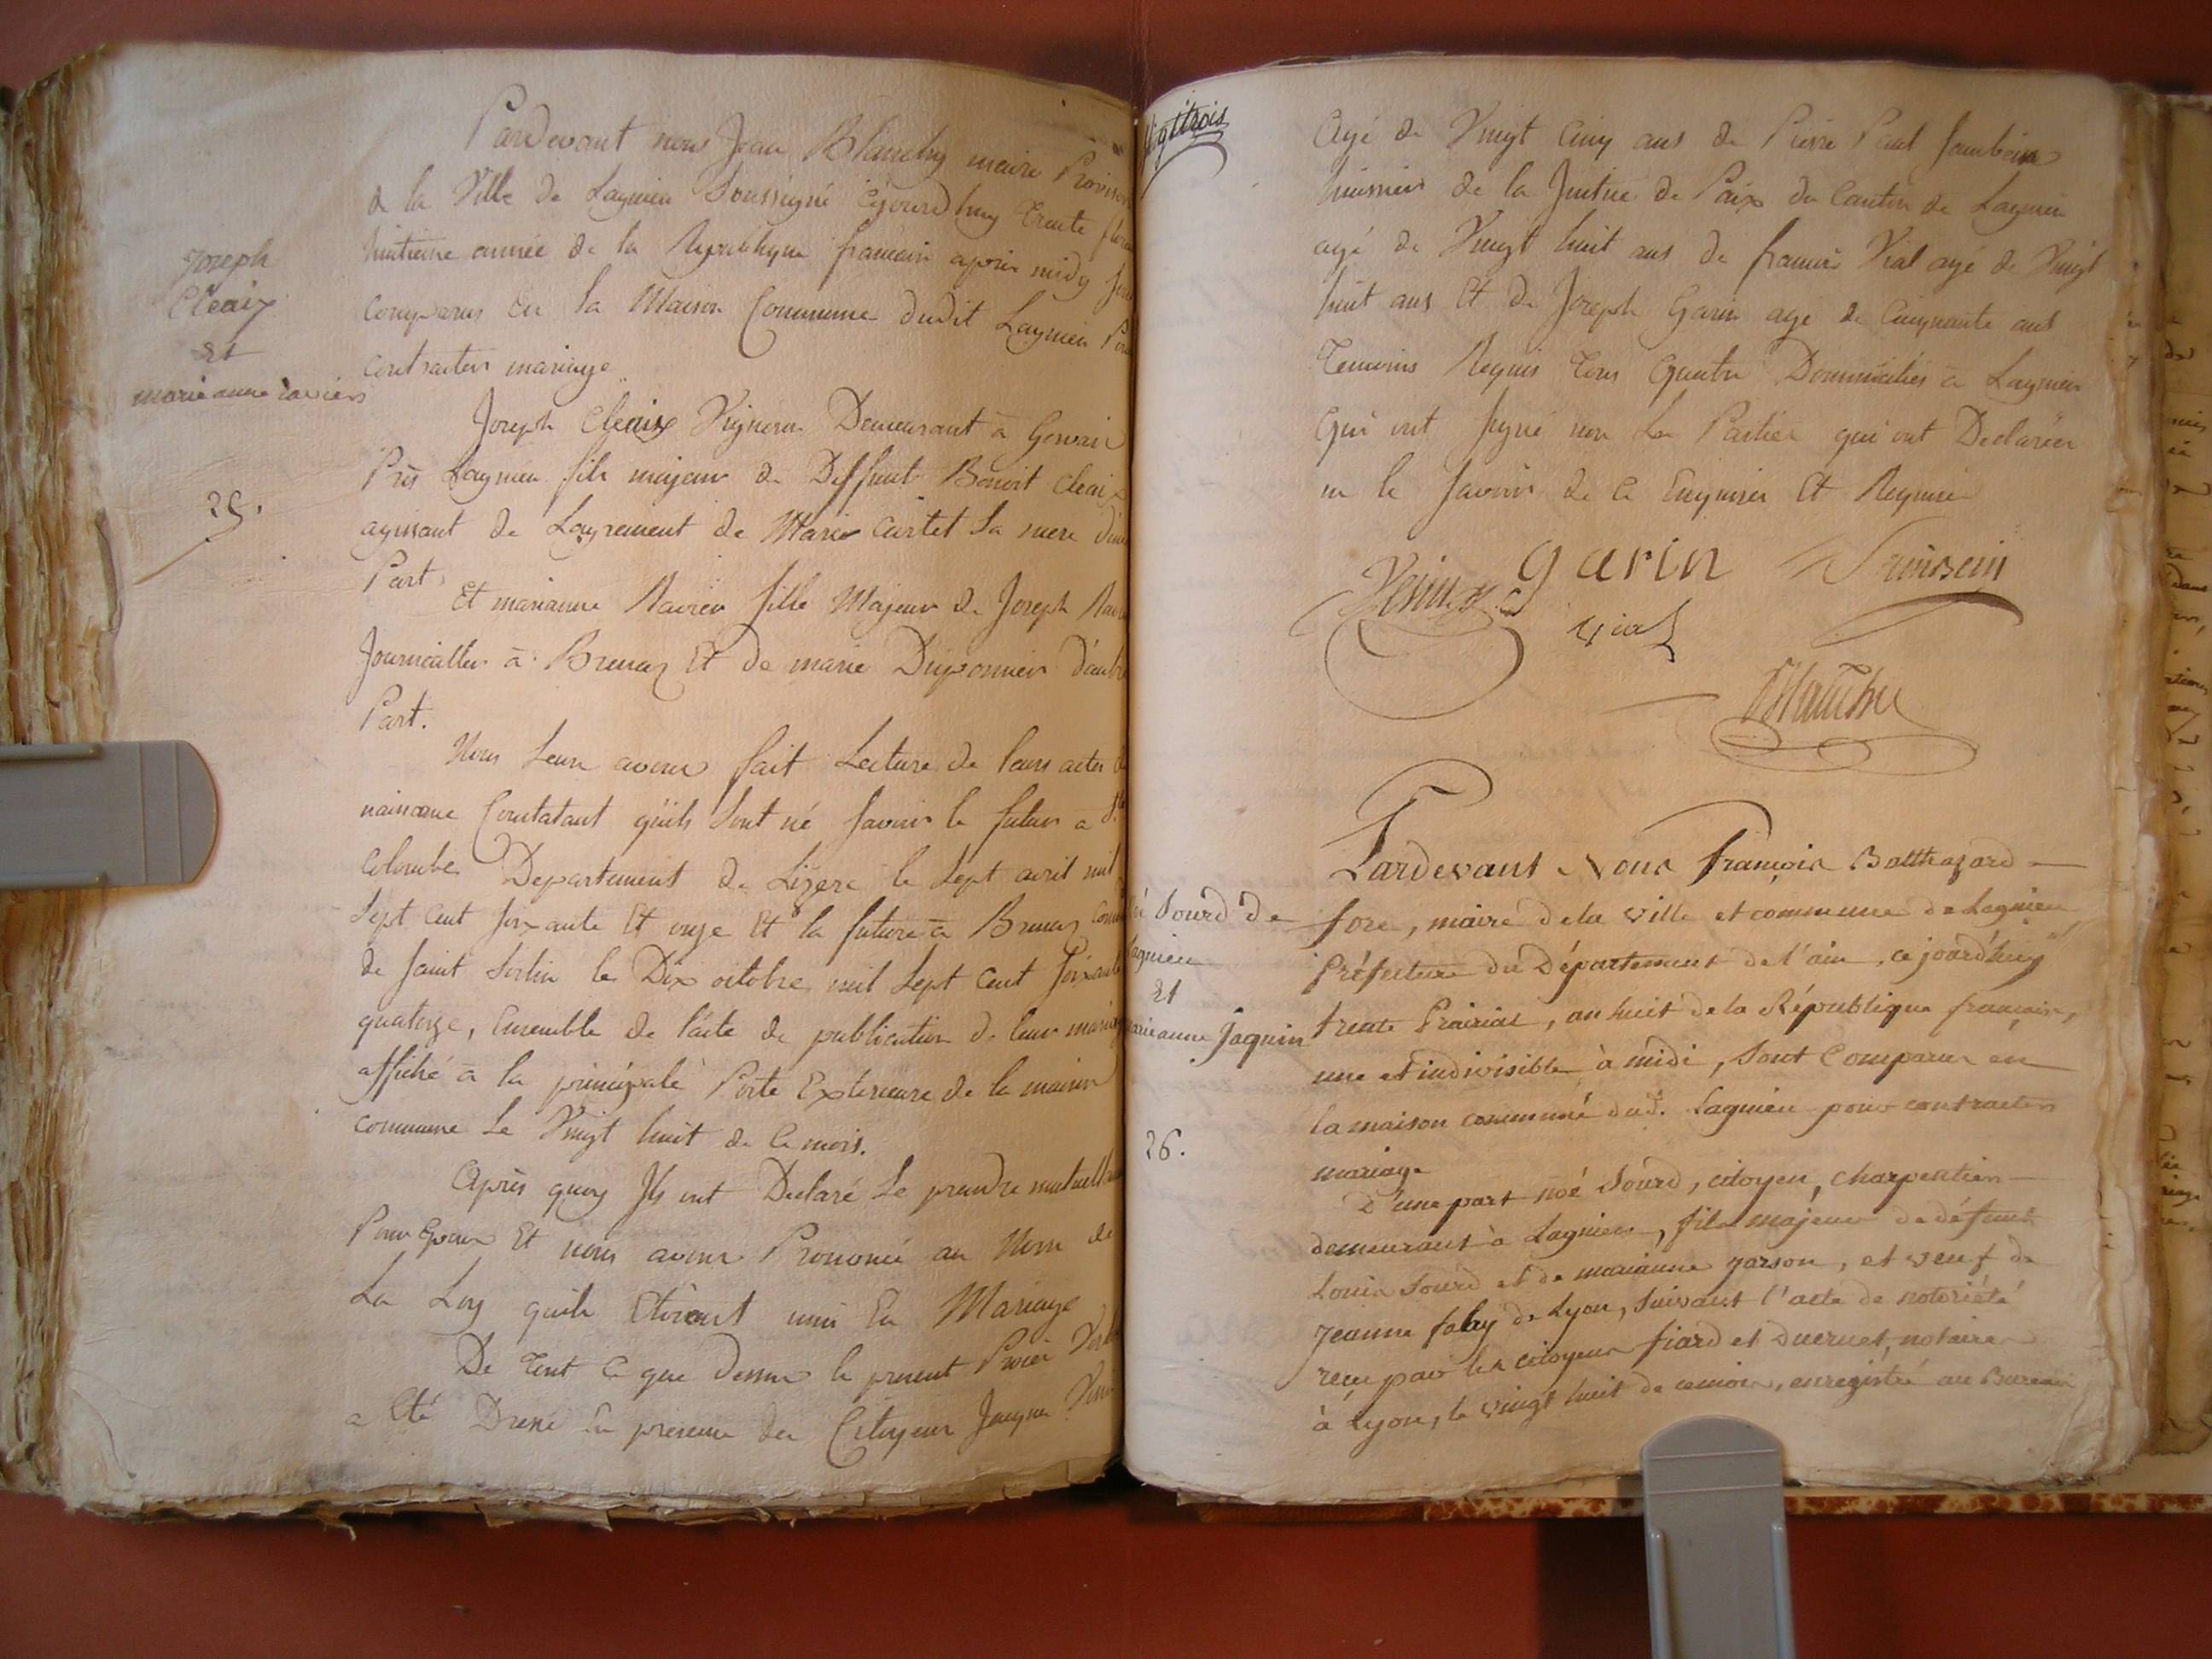 Pardevant nous Jean Blanchy maire Provisoir
de la Ville de Lagnieu Soussigné Cejourdhuy Trente
huitieme année de la Republique francaise apres midy
Comparus En la Maison Commune dudit Lagnieu
Contracter mariage
Joseph
Cleaix
Et
marie anne ravier
25.
Joseph Cleaix Vigneron Demeurant à
Près Lagnieu fils majeur de Deffunt Benoit Cleaix
agissant de Lagrement de Marie Curtet Sa mere d'une
Part
Et marianne Ravier fille Majeur de Joseph
Journaillier à Brenaz Et de marie Duponnier d'autre
Part.
Nous Leur avons fait Lecture de leurs actes de
naissance Constatant quils Sont né Savoir le futur a Ste
Colombe Departement de Lizere le Sept avril mil
Sept Cent Soixante Et onze Et la future à Brenaz
de Saint Sorlin le Dix octobre mil Sept Cent Soixante
quatorze, Ensemble de l'acte de publication de leur mariage
affiché à la principale Porte Exterieure de la maison
commune Le Vingt huit de Ce mois.
Après quoy Ils ont Declaré Se prendre mutuellement
Pour Epoux Et nous avons Prononcé au Nom de
La Loy quils Etoient unis En Mariage
De tout Ce que dessus le present Procès Verbal
a Eté Dressé En presence des Citoyens Jacque
Vigttrois
Agé de Vingt Cinq ans de Pierre Paul
huissier de la Justice de Paix du Canton de Lagnieu
agé de Vingt huit ans de francois Vial agé de Vingt
huit ans Et de Joseph Garin age de Cinquante ans
Temoins Requis Tous Quatre Dommiciliés à Lagnieu
Qui ont Signé non Les Parties qui ont Declarées
ne le Savoir de Ce Enquises Et Requises
garin
Vial
Sourd de
Lagnieu
Et
marieanne Jaquin
26.
Pardevant Nous François Balthazard
fore, maire dela ville et commune de Lagnieu
Préfecture du Département de l'ain, ce jourd'huy
trente Prairial, an huit de la République francaise,
une et indivisible à midi, Sont Comparus en
la maison commune dud. Lagnieu pour contracter
mariage
D'une part noé Sourd, citoyen, charpentier
demeurant à Lagnieu, fils majeur de défunt
Louis Sourd et de marianne jarson, et veuf de
Jeanne falry de Lyon, Suivant l'acte de notoriété
recu par les citoyens fiard et Ducruet, notaires
à Lyon, le vingt huit de cemois, enregistré au Bureau